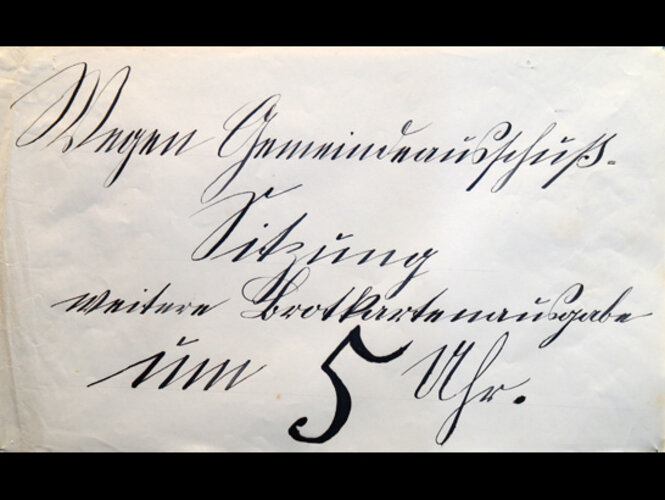 Wegen Gemeindeausschuß-
Sitzung
weitere Brotkartenausgabe
um 5 Uhr.